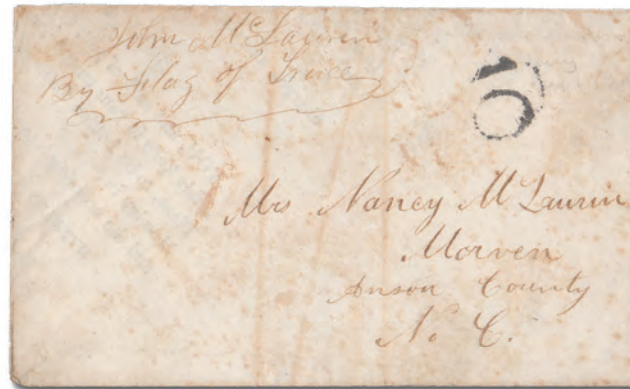 John McLaurin
By Flag of Truce
10
Mrs Nancy McLaurin
Morven
Anson County
N. C.